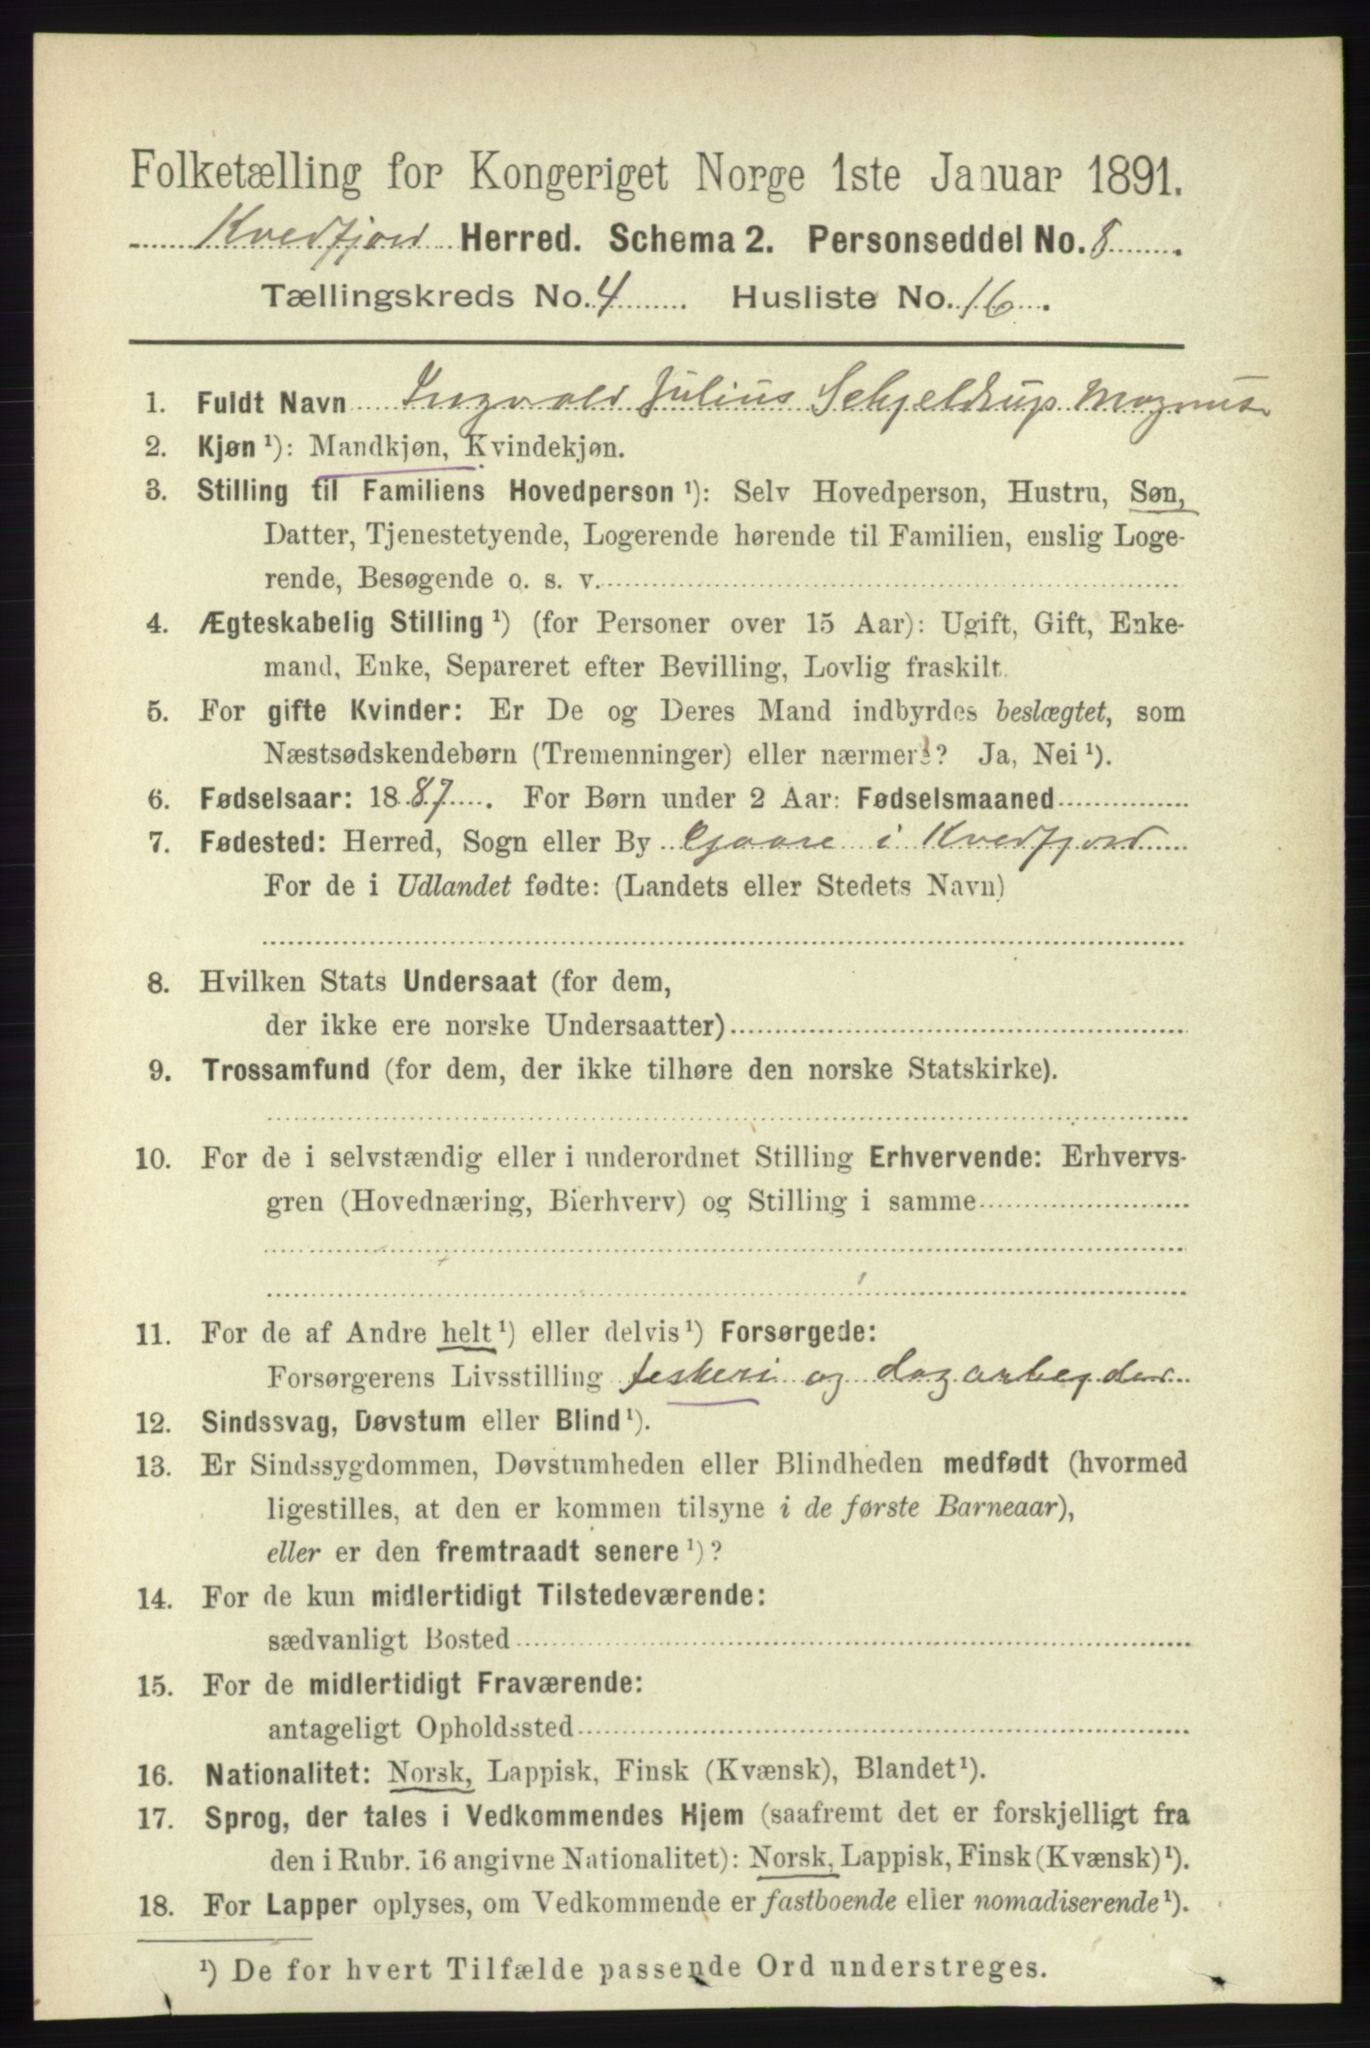 Folketælling for Kongeriget Norge 1ste Januar 1891.
Kvedfjord Herred. Schema 2. Personseddel No. 8.
Tællingskreds No. 4. Husliste No. 16.
1. Fuldt Navn Ingvald Julius Schjeldrup Magnus
2. Kjøn ¹): Mandkjøn, Kvindekjøn.
3. Stilling til Familiens Hovedperson ¹): Selv Hovedperson, Hustru, Søn,
Datter, Tjenestetyende, Logerende hørende til Familien, enslig Loge-
rende, Besøgende o. s. v.
4. Ægteskabelig Stilling ¹) (for Personer over 15 Aar): Ugift, Gift, Enke-
mand, Enke, Separeret efter Bevilling, Lovlig fraskilt.
5. For gifte Kvinder: Er De og Deres Mand indbyrdes beslægtet, som
Næstsødskendebørn (Tremenninger) eller nærmere? Ja, Nei ¹).
6. Fødselsaar: 1887. For Børn under 2 Aar: Fødselsmaaned
7. Fødested: Herred, Sogn eller By Gaare i Kvedfjord
For de i Udlandet fødte: (Landets eller Stedets Navn)
8. Hvilken Stats Undersaat (for dem,
der ikke ere norske Undersaatter)
9. Trossamfund (for dem, der ikke tilhøre den norske Statskirke).
10. For de i selvstændig eller i underordnet Stilling Erhvervende: Erhvervs-
gren (Hovednæring, Bierhverv) og Stilling i samme
11. For de af Andre helt ¹) eller delvis ¹) Forsørgede:
Forsørgerens Livsstilling feskeri og dagarbegder
12. Sindssvag, Døvstum eller Blind ¹).
13. Er Sindssygdommen, Døvstumheden eller Blindheden medfødt (hvormed
ligestilles, at den er kommen tilsyne i de første Barneaar),
eller er den fremtraadt senere ¹)?
14. For de kun midlertidigt Tilstedeværende:
sædvanligt Bosted
15. For de midlertidigt Fraværende:
antageligt Opholdssted
16. Nationalitet: Norsk, Lappisk, Finsk (Kvænsk), Blandet ¹).
17. Sprog, der tales i Vedkommendes Hjem (saafremt det er forskjelligt fra
den i Rubr. 16 angivne Nationalitet): Norsk, Lappisk, Finsk (Kvænsk) ¹).
18. For Lapper oplyses, om Vedkommende er fastboende eller nomadiserende ¹).
¹) De for hvert Tilfælde passende Ord understreges.